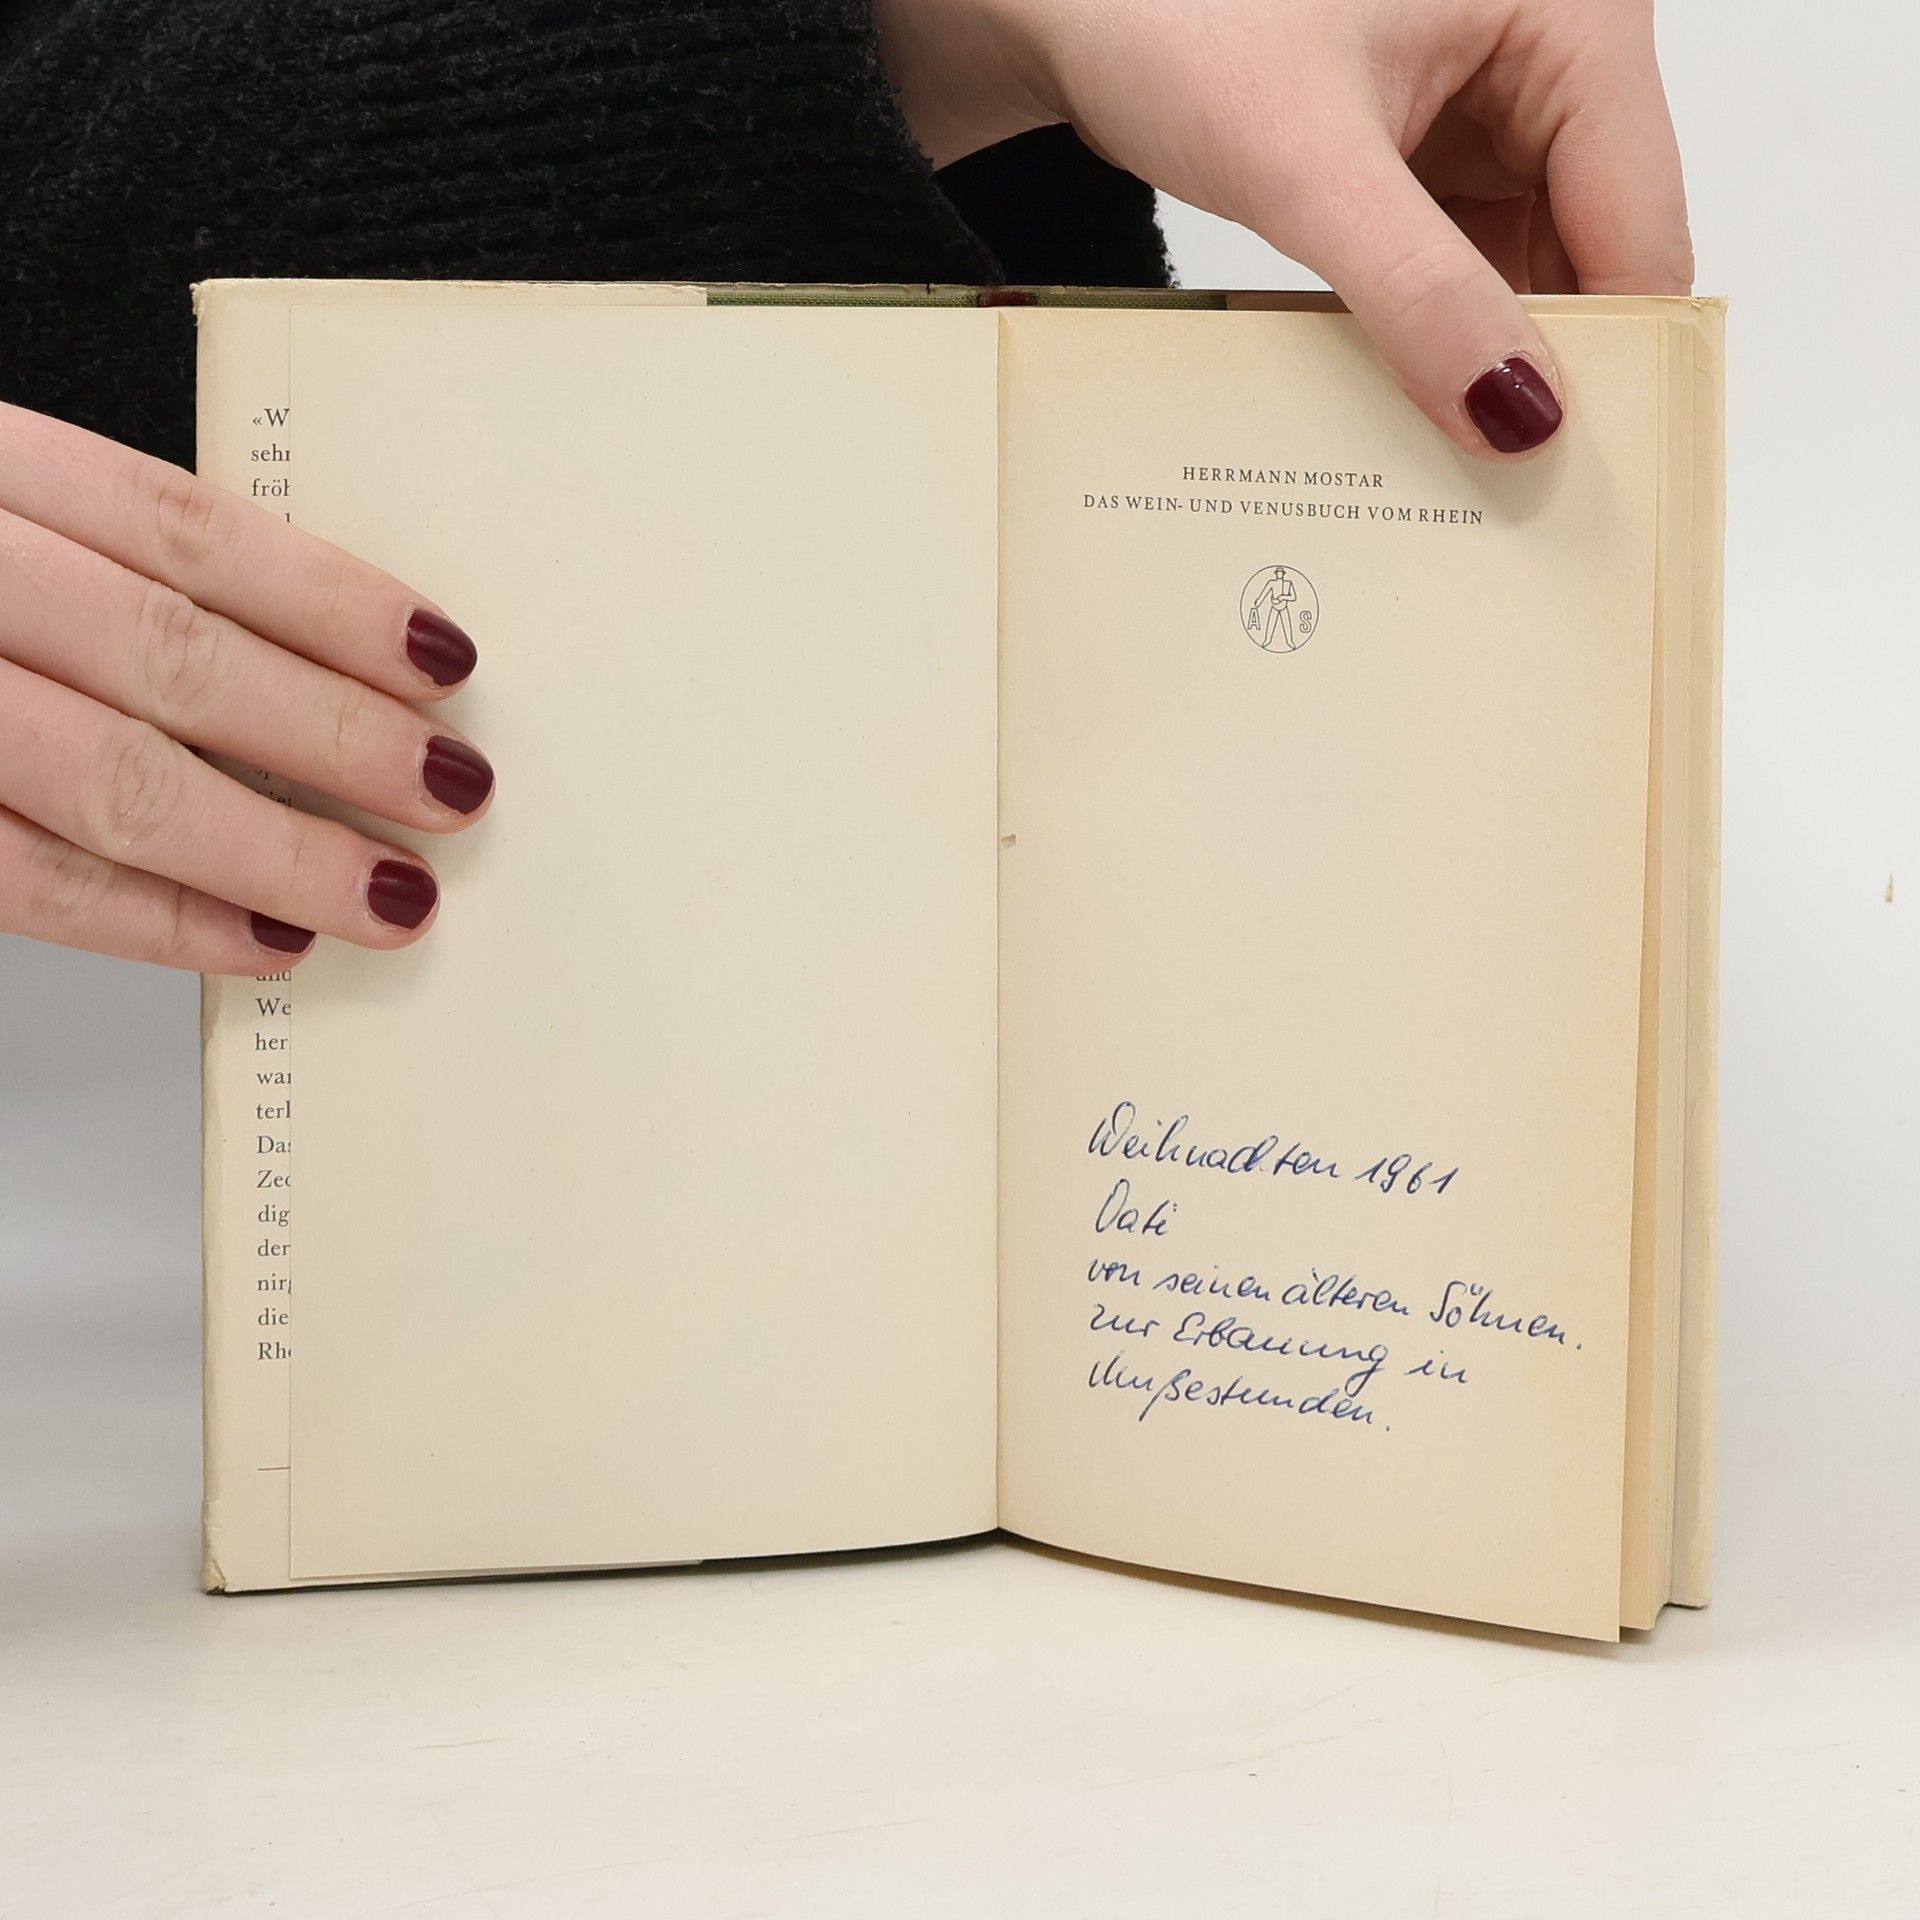 «W
sehr
fröh
und
We
her
war
terl
Das
Zec
dig
der
nirg
die
Rhe
HERRMANN MOSTAR
DAS WEIN- UND VENUSBUCH VOM RHEIN
A S
Weihnachten 1961
Vati
von seinen älteren Söhnen.
zur Erbauung in
Mußestunden.